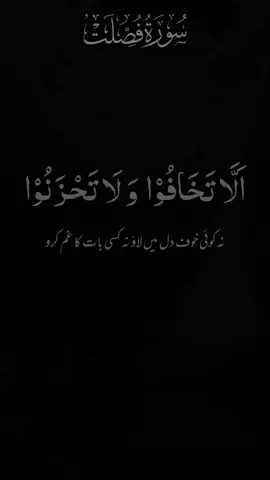 سُورَةُ فُصِّلَتْ
اَلَّا تَخَافُوْا وَلَا تَحْزَنُوْا
نہ کوئی خوف دل میں لاؤ نہ کسی بات کا غم کرو